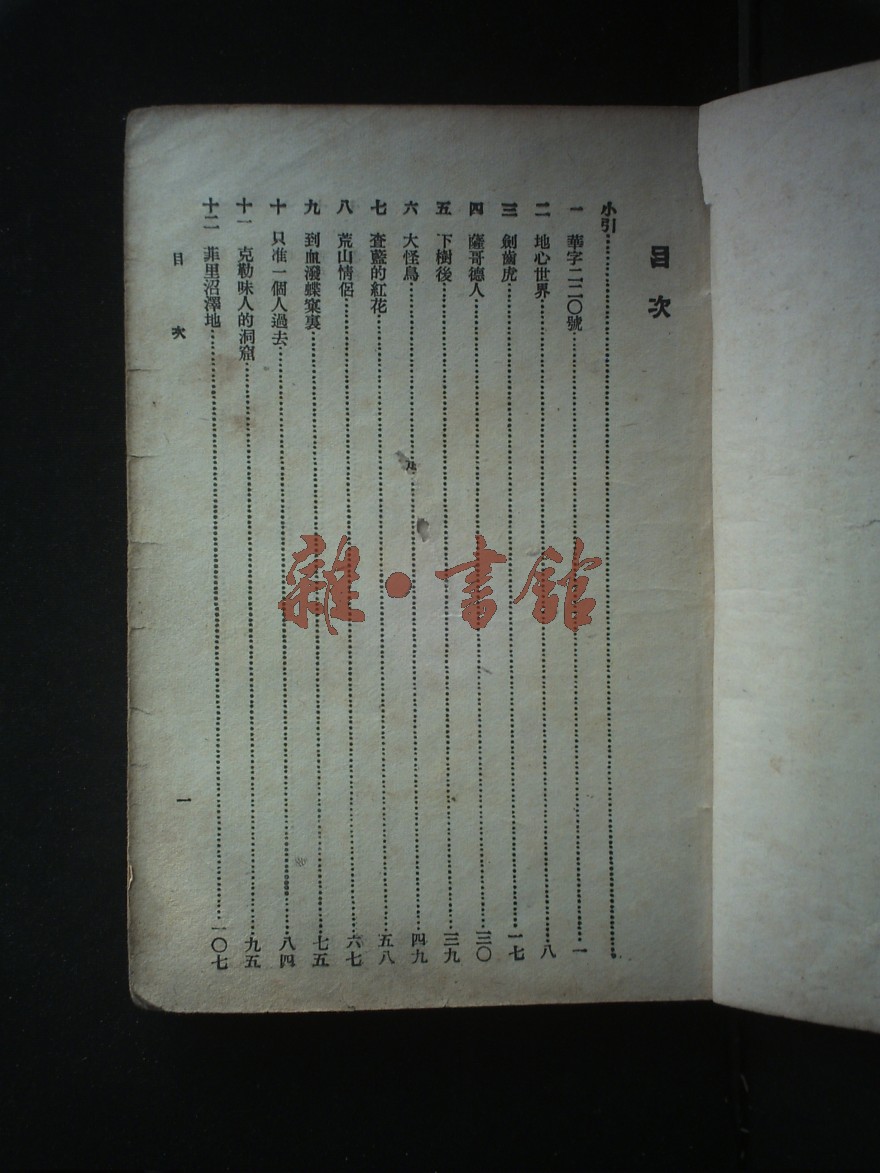 目次
小引
一 華字二二〇號 一
二 地心世界 八
三 劍齒虎 一七
四 薩哥德人 三〇
五 下樹後 三九
六 大怪鳥 四九
七 查藍的紅花 五八
八 荒山情侶 六七
九 到血潑蝶窠裏 七五
十 只准一個人過去 八四
十一 克勒味人的洞窟 九五
十二 菲里沼澤地 一〇七
目次 一
雜·書館